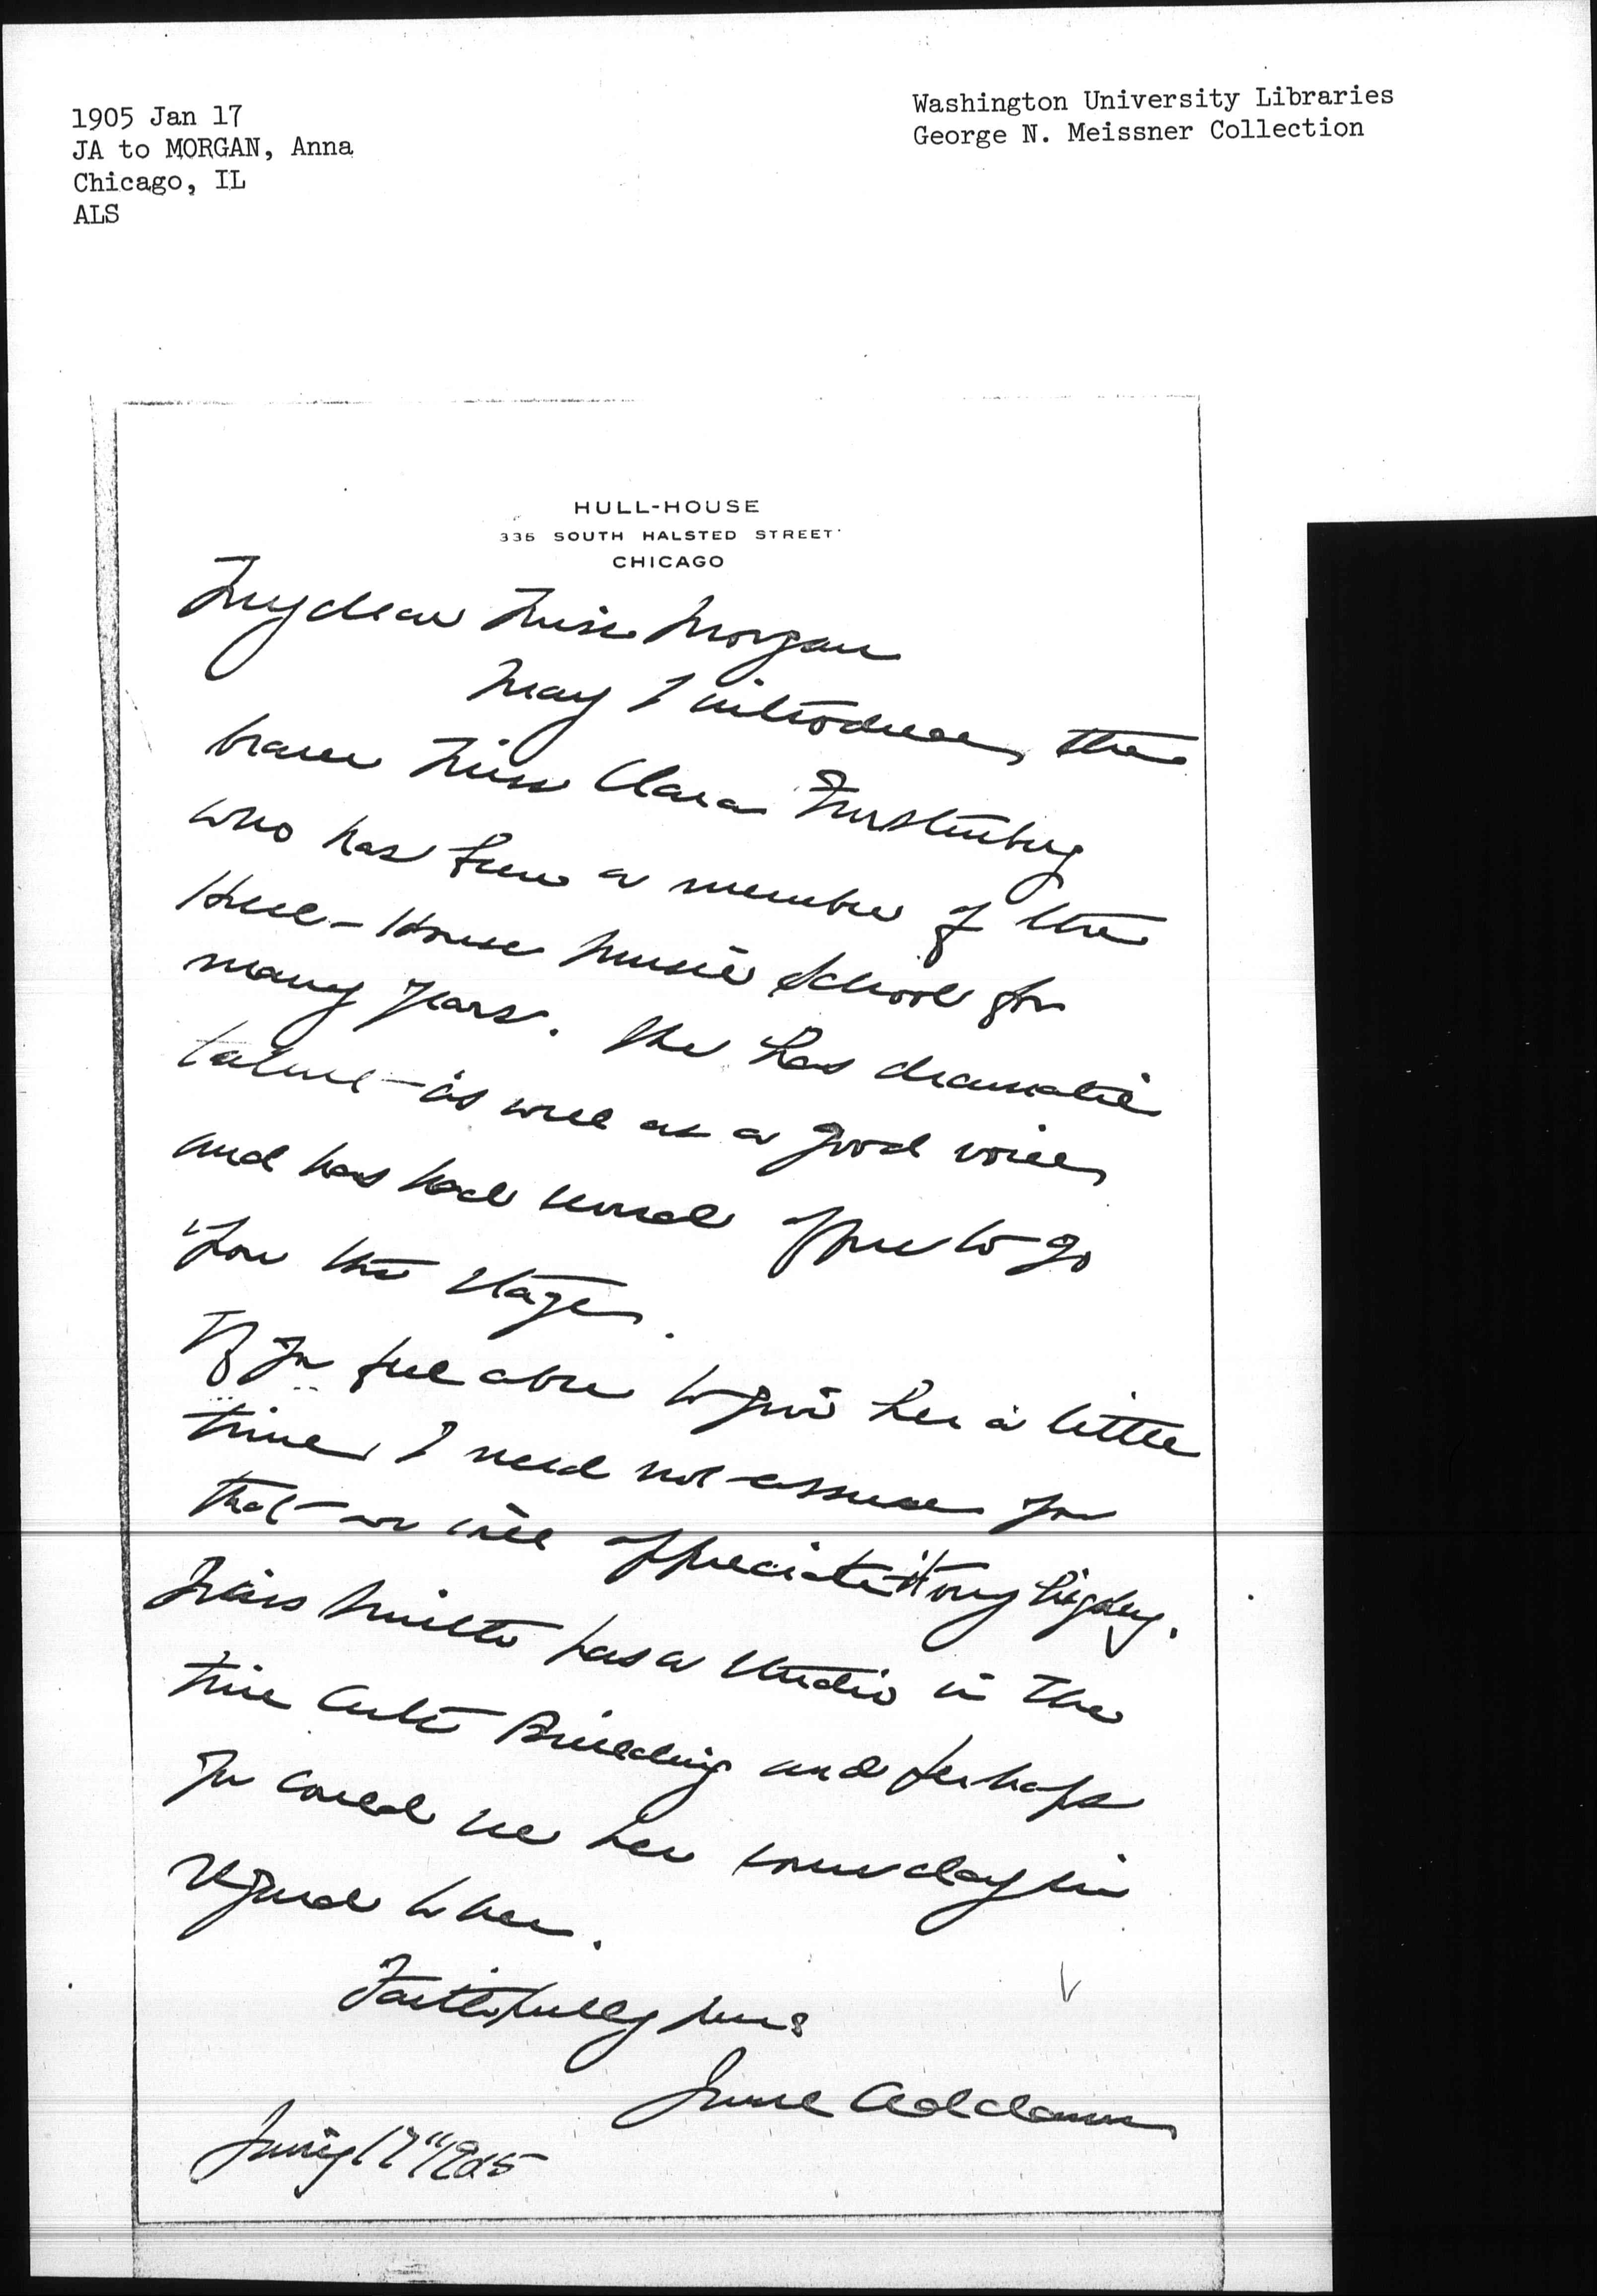 1905 Jan 17
JA to MORGAN, Anna
Chicago, IL
ALS
Washington University Libraries
George N. Meissner Collection
HULL-HOUSE
335 SOUTH HALSTED STREET
CHICAGO
My dear Miss Morgan
May I introduce, the
bearer Miss Clara
who has been a member of the
Hull-House Music School for
many years. She has dramatic
talent as well as a good voice,
and has had several offers to go
upon the stage.
If you feel able to give her a little
time, I need not assure you
that we will appreciate it very highly.
Miss Smith has a studio in the
Fine Arts Building and perhaps
you could see her some day in
regard to her.
Faithfully yours
Jane Addams
January 17" 1905